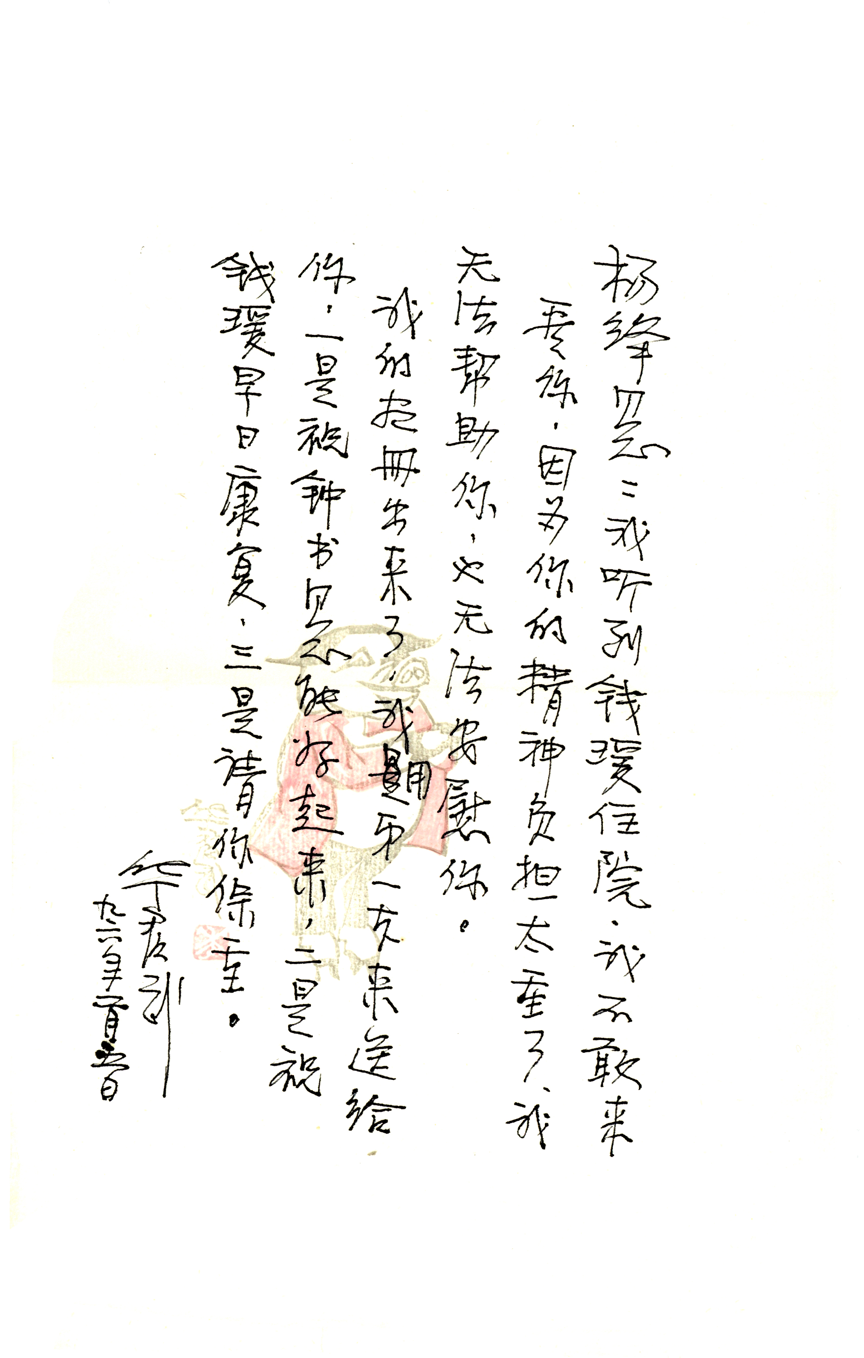 杨绛同志：我听到钱瑗住院，我不敢来
看你，因为你的精神负担太重了，我
无法帮助你，也无法安慰你。
我的画册出来了，我用第一本来送给
你，一是祝钟书同志能好起来，二是祝
钱瑗早日康复，三是请你保重。
华君武
九六年